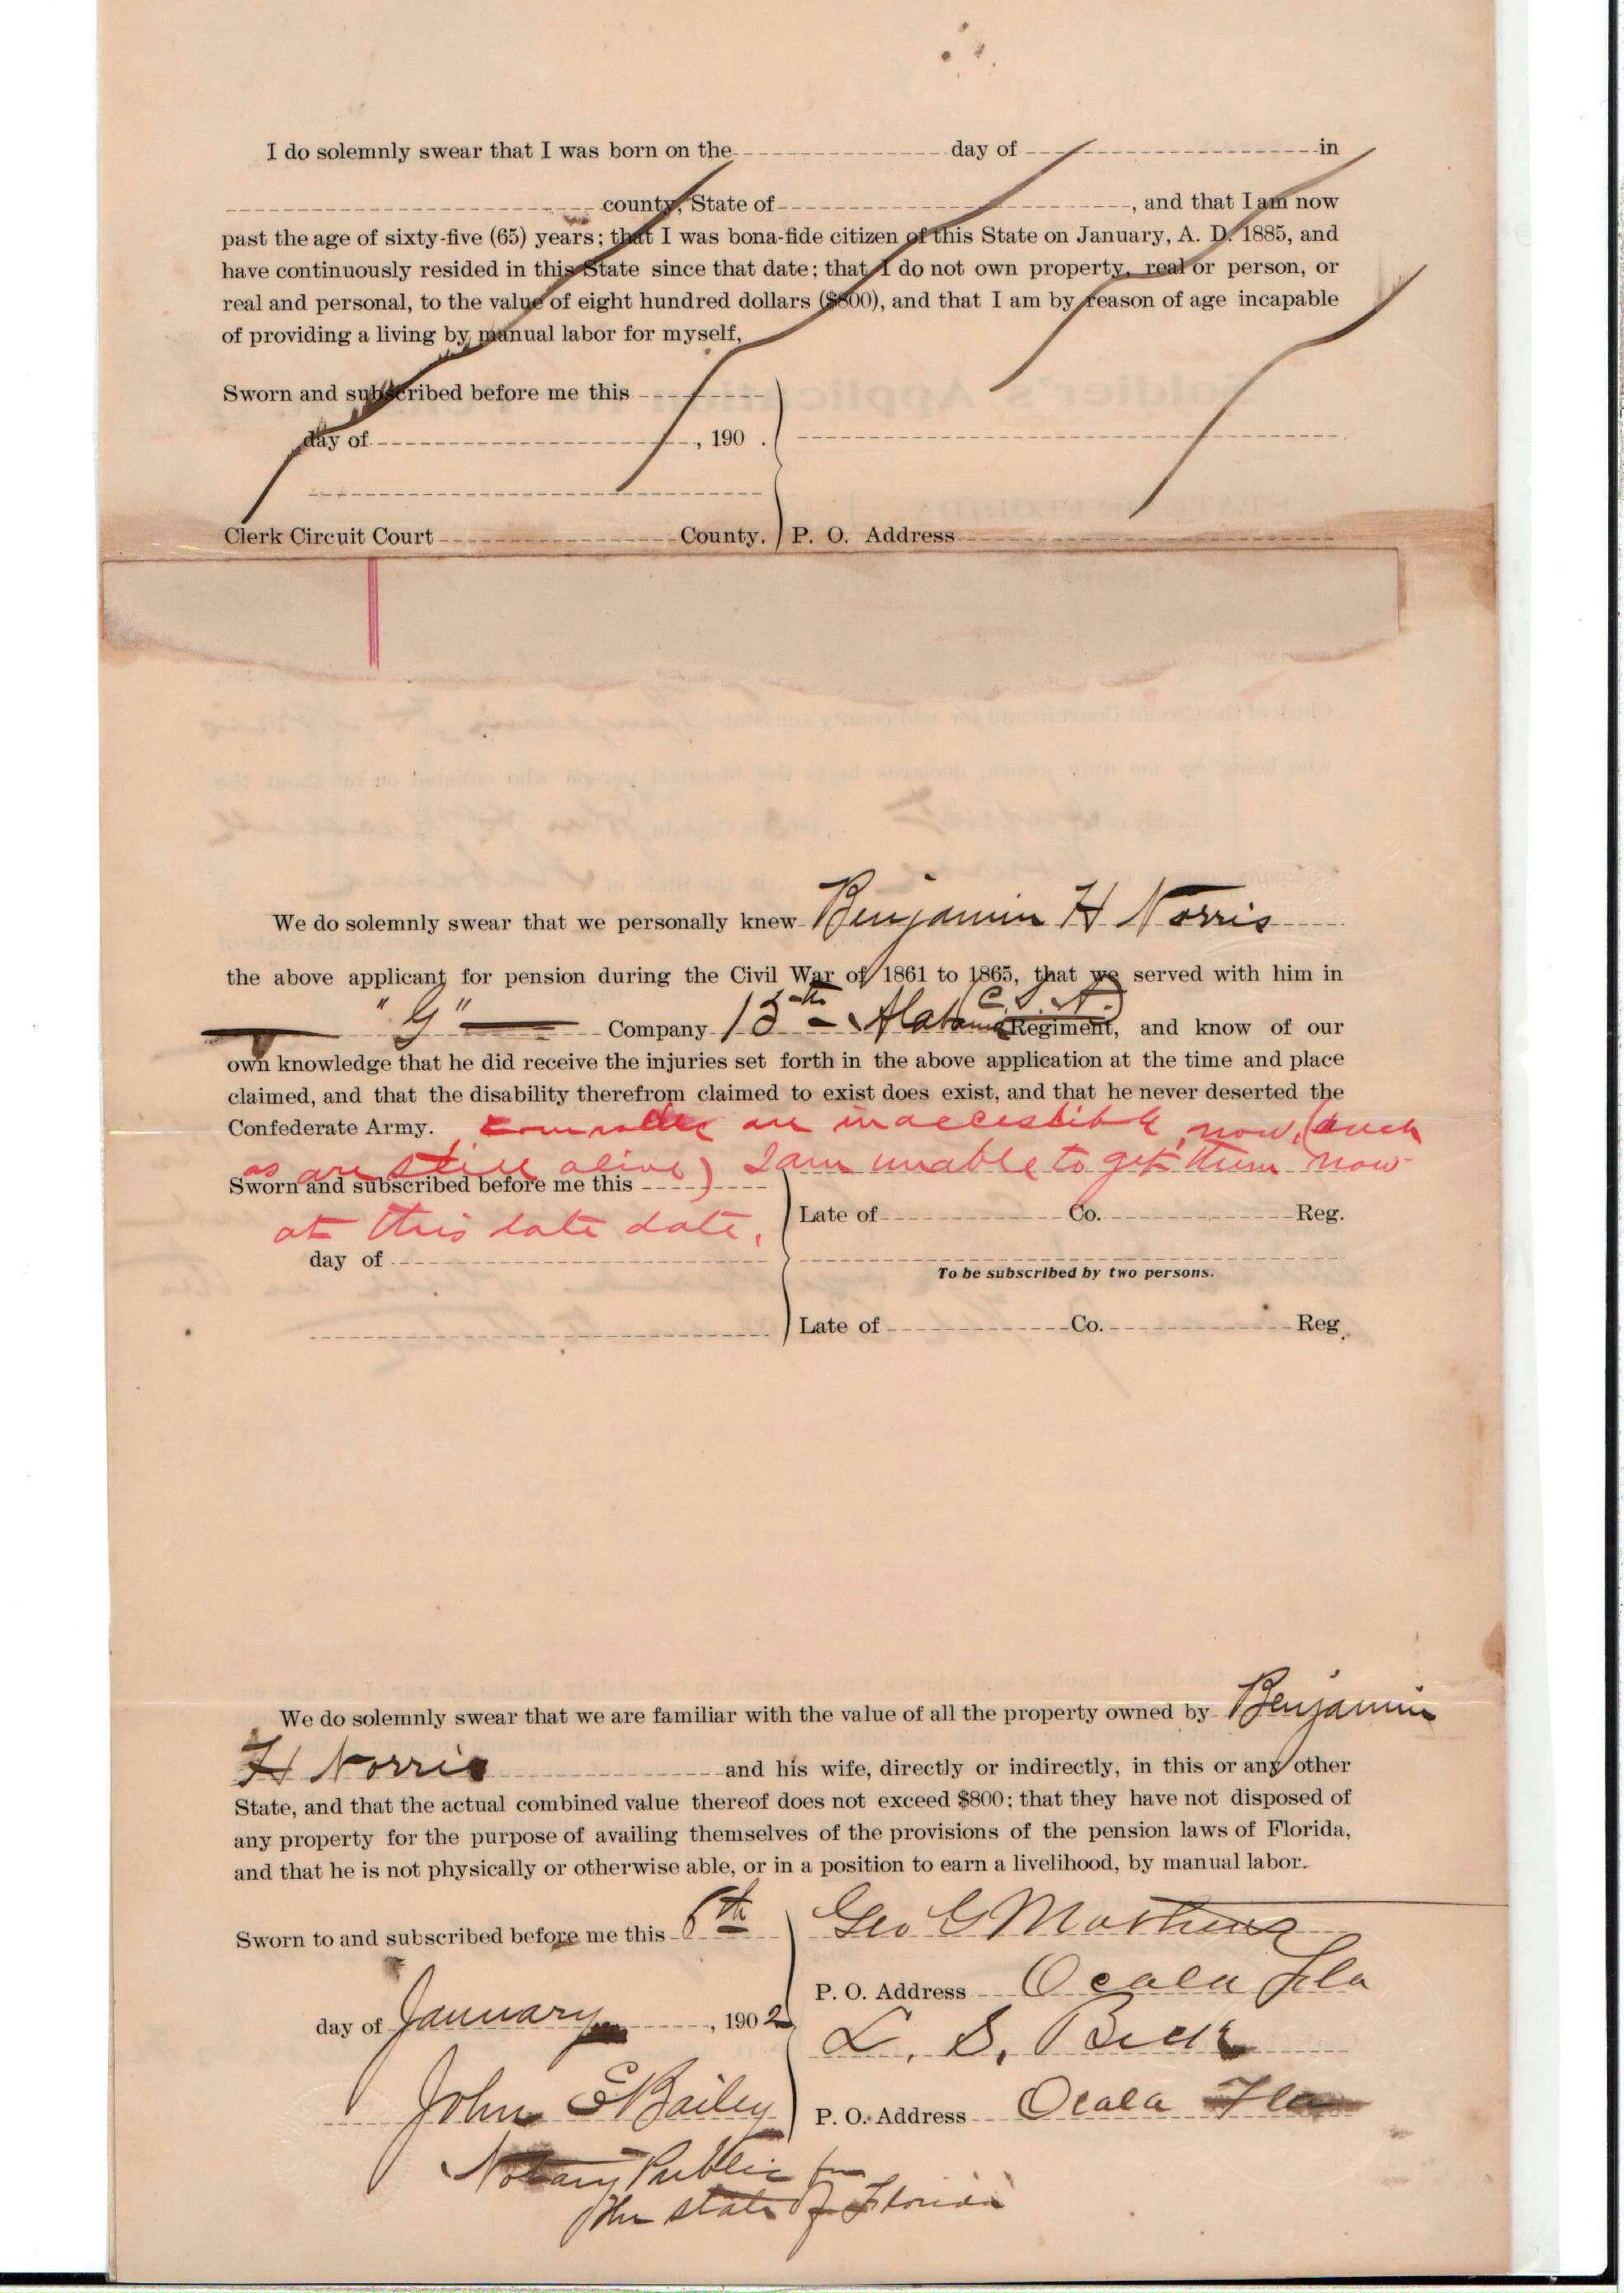 I do solemnly swear that I was born on the day of in
county, State of , and that I am now
past the age of sixty-five (65) years; that I was bona-fide citizen of this State on January, A. D. 1885, and
have continuously resided in this State since that date; that I do not own property, real or person, or
real and personal, to the value of eight hundred dollars ($800), and that I am by reason of age incapable
of providing a living by manual labor for myself,
Sworn and subscribed before me this
day of , 190 .
Clerk Circuit Court County. P. O. Address
We do solemnly swear that we personally knew Benjamin H Norris
the above applicant for pension during the Civil War of 1861 to 1865, that we served with him in
"G" Company 15th Alabama C. S. A. Regiment, and know of our
own knowledge that he did receive the injuries set forth in the above application at the time and place
claimed, and that the disability therefrom claimed to exist does exist, and that he never deserted the
Confederate Army. are inaccessible now, (such
as are still alive) I am unable to get them now
Sworn and subscribed before me this
at this late date.
Late of Co. Reg.
day of
To be subscribed by two persons.
Late of Co. Reg.
We do solemnly swear that we are familiar with the value of all the property owned by Benjamin
H Norris and his wife, directly or indirectly, in this or any other
State, and that the actual combined value thereof does not exceed $800; that they have not disposed of
any property for the purpose of availing themselves of the provisions of the pension laws of Florida,
and that he is not physically or otherwise able, or in a position to earn a livelihood, by manual labor.
Sworn to and subscribed before me this 6th Geo G
P. O. Address Ocala Fla
day of January , 1902
L. S.
John E Bailey P. O. Address Ocala Fla
Notary Public for
the state of Florida